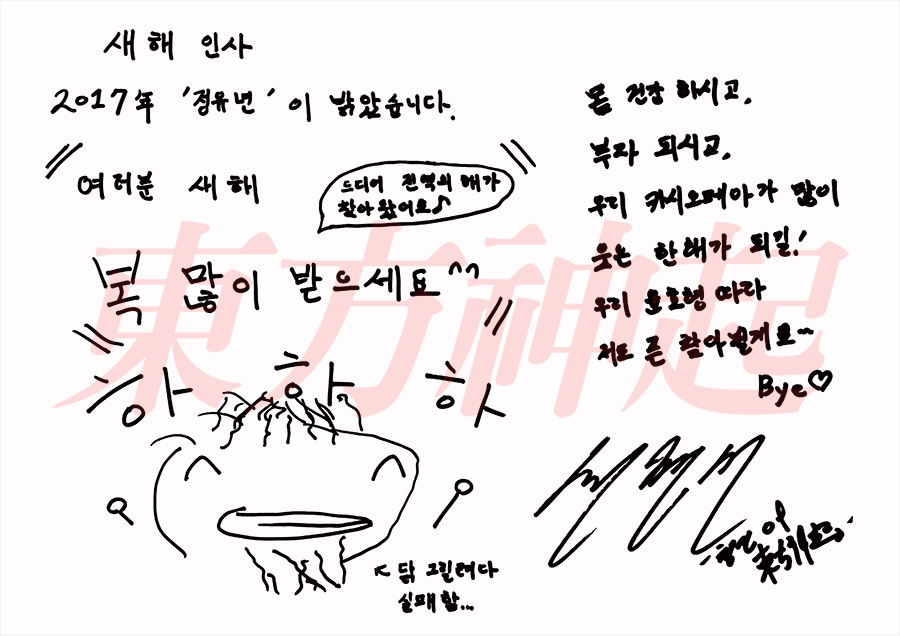 새해 인사
2017年 '정유년' 이 밝았습니다.
여러분 새해
드디어 전역의 해가
찾아왔어요♪
복 많이 받으세요^^
하 하 하
↖ 닭 그릴려다
실패함...
몸 건강 하시고,
부자 되시고,
우리 카시오페아가 많이
웃는 한해가 되길!
우리 윤호형 따라
저도 곧 찾아뵐게요~
Bye♡
東方神起